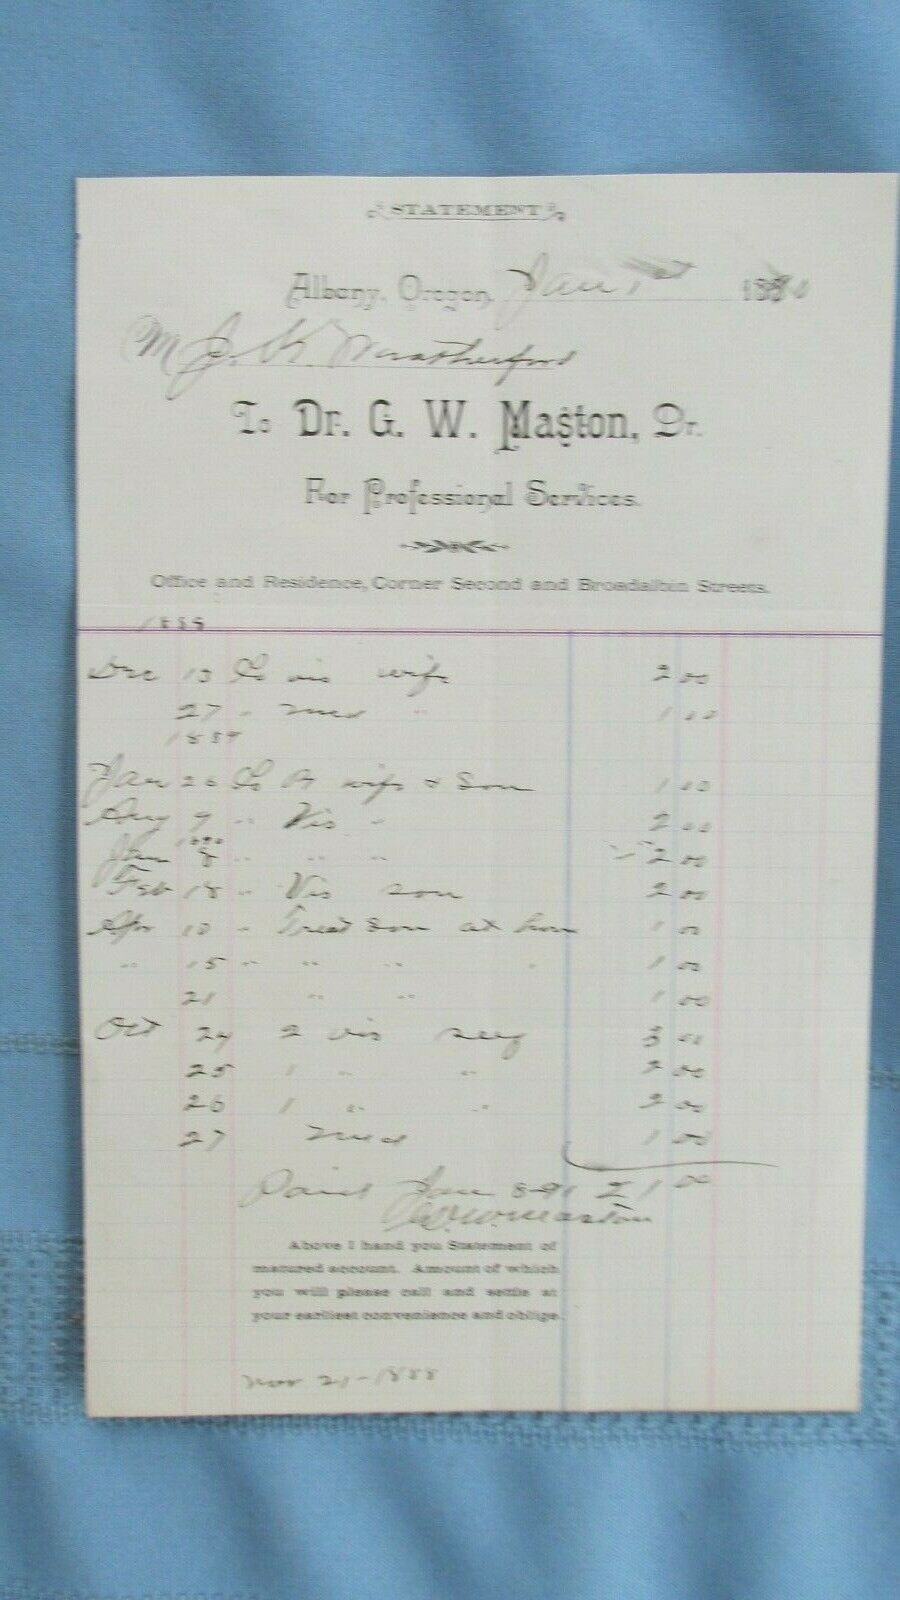 STATEMENT
Albany, Oregon, Jan 1st 18
M J. K. Weatherford
To Dr. G. W. Maston, Dr.
For Professional Services.
Office and Residence, Corner Second and Broadalbin Streets.
1888
Dec 13 To vis wife 2 00
27 " Med " 1 00
1889
Jan 26 To wife & Son 1 00
Aug 9 " Vis " 2 00
1890
Jan 8 " " " 2 00
Feb 18 " Vis son 2 00
Apr 10 " Treat Son at hom 1 00
" 15 " " " " 1 00
21 " " 1 00
Oct 24 2 vis self 3 00
25 1 " " 2 00
26 1 " " 2 00
27 Med 1 00
Paid Jan 8-91 21 00
G. W. Maston
Above I hand you Statement of
matured account. Amount of which
you will please call and settle at
your earliest convenience and oblige.
Nov 21-1888